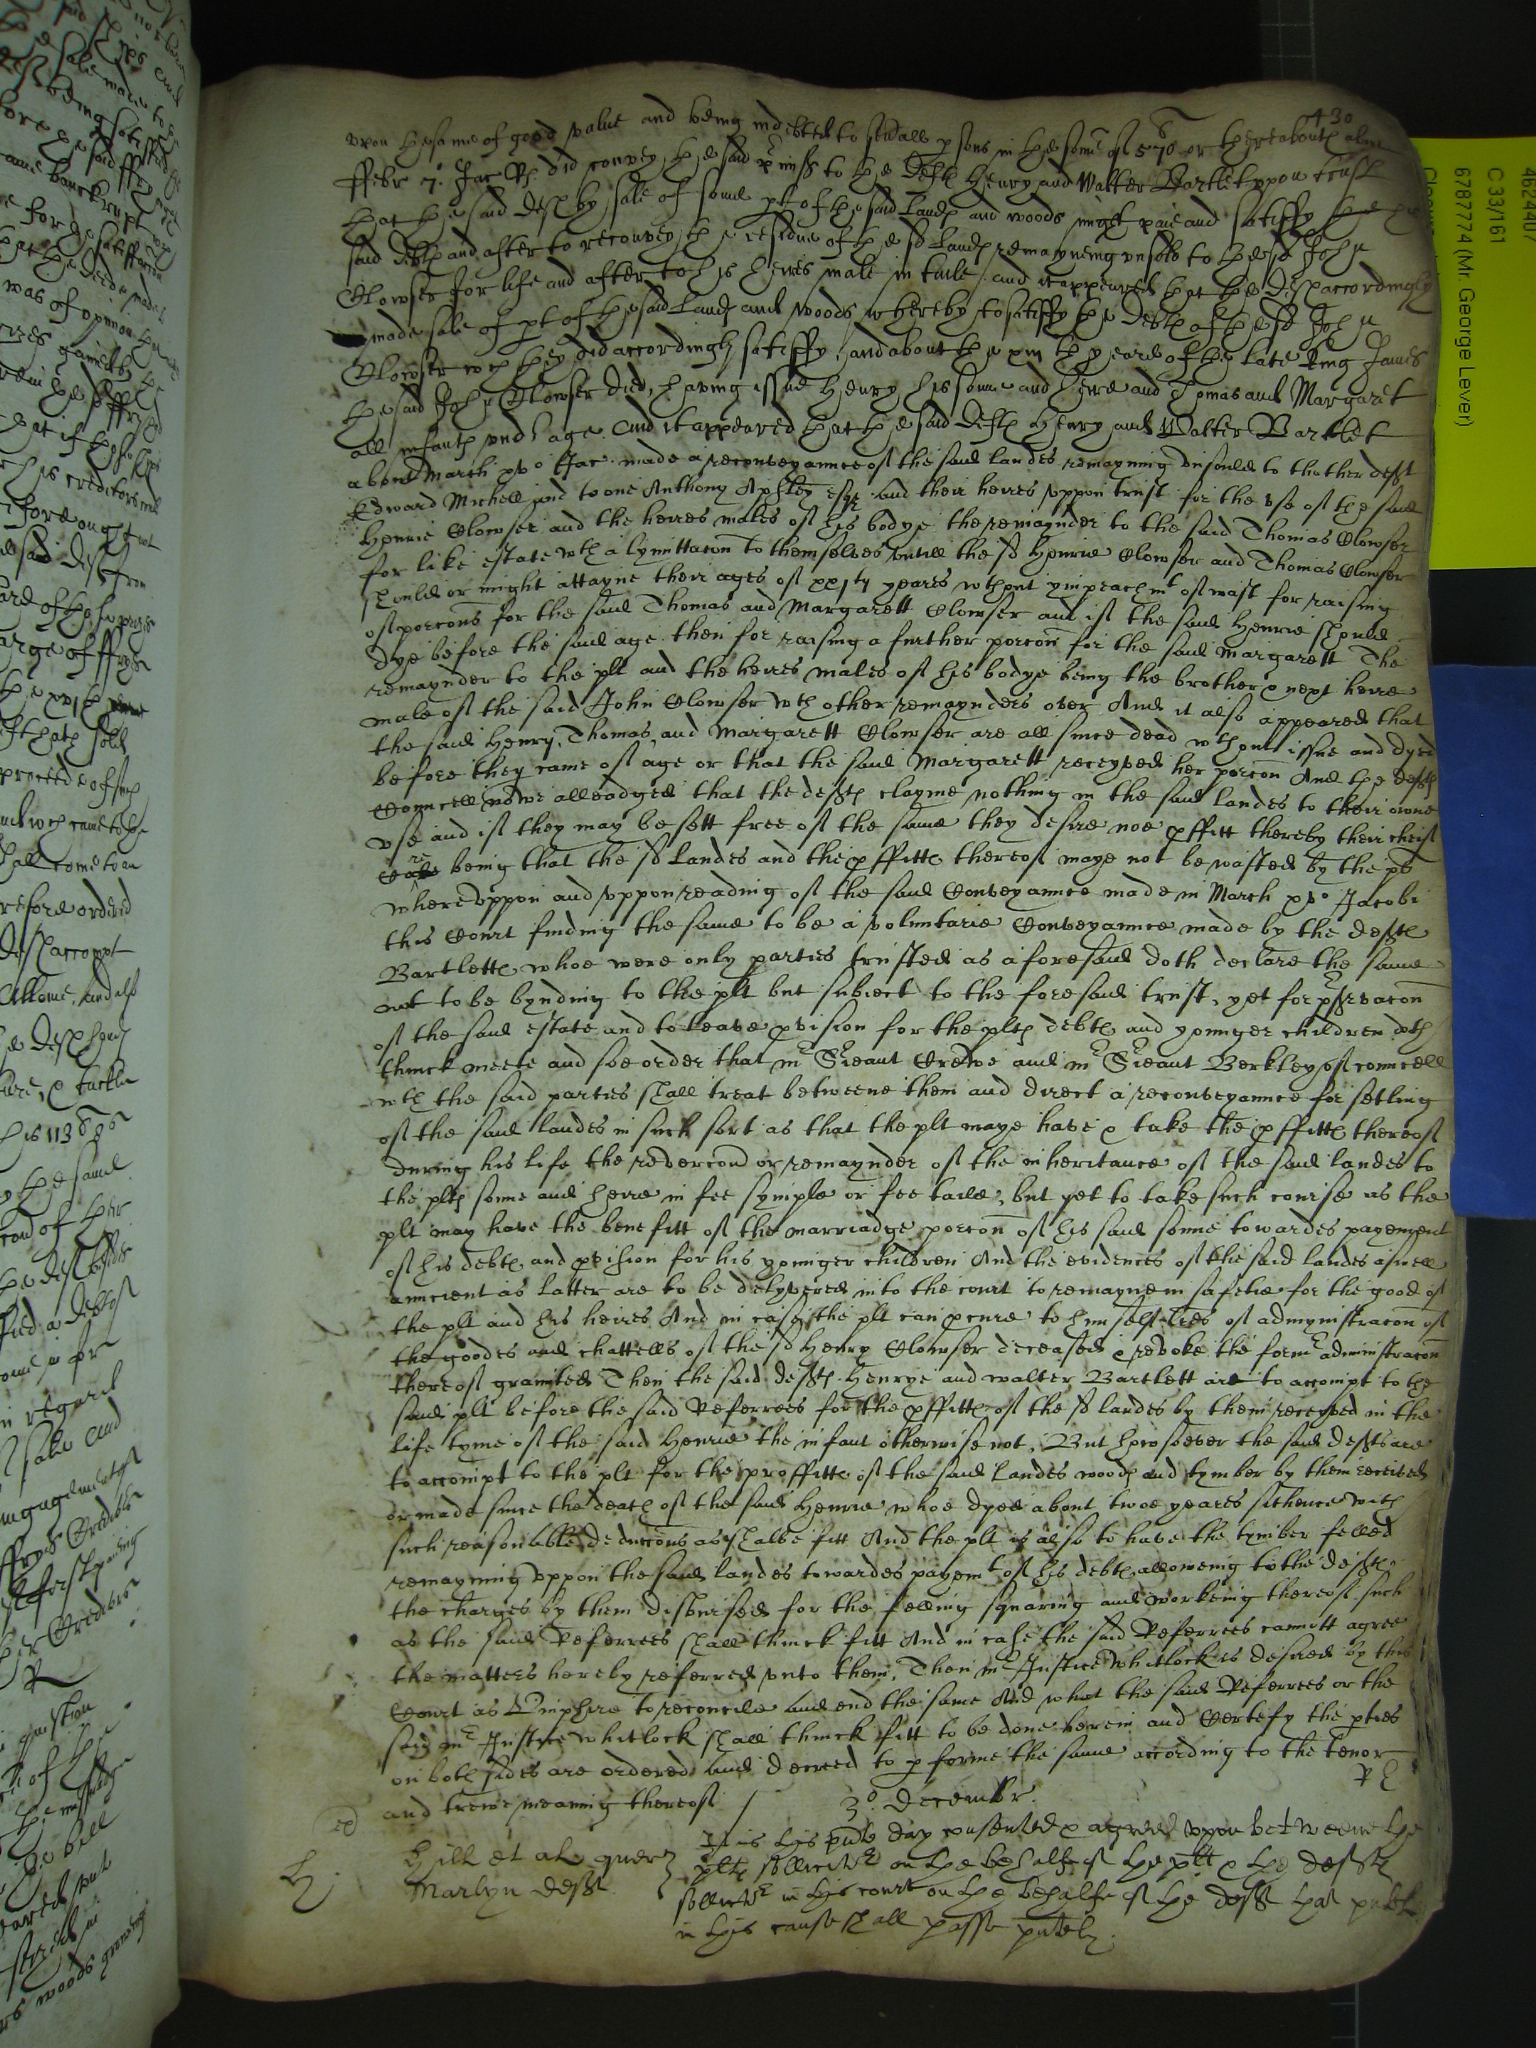 430
vpon the same of good value and being indebted to seu'all p'sons in the some of 570li or thereabout℮ about
Ffebr 7.o Jac R℮ did convey the said p'miss℮ to the Deft℮ Henry and Walter Bartlet vppon trust
that the said Deft℮ by sale of some pt of the said Land℮ and woods might paie and satisfy the
said debt℮ and after to reconvey the residue of the sd Land℮ remayneing vnsold to the sd John
Clowser for life and after to his heires male in taile / and it appeared that the Deft℮ accordingly
made sale of pt of the said Land℮ and woods whereby to satisfy the debt℮ of the sd John
Clowser wch they did accordingly satisfy, and about the xiijth yeare of the late king James
the said John Clowser died, having issue Henry his sonne and heire and Thomas and Margaret
all infant℮ vnder age. And it appeared that the said Deft℮ Henry and Walter Bartlet
about March xvo Jac. made a reconveyannce of the said landes remayning vnsould to thother defft
Edward Michell and to one Anthony Aphley esqr and their heires vppon trust for the vse of the said
Henrie Clowser and the heires males of his bodye the remaynder to the said Thomas Clowser
for like estate wth a lymittacon to themselves vntill the sd Henrie Clowser and Thomas Clowser
should or might attayne their ages of xxjty yeares wthout ympeachmt of wast for raising
of porcons for the said Thomas and Margarett Clowser and if the said Henrie should
dye before the said age. then for raising a further porcon for the said Margarett The
remaynder to the plt and the heires males of his bodye being the brother & next heire
male of the said John Clowser wth other remaynders over And it also appeared that
the said Henry, Thomas, and Margarett Clowser are all since dead wthout issue and dyed
before they came of age or that the said Margarett receyved her porcon And the defft℮
Councell nowe alleadged that the defft℮ clayme nothing in the said landes to their owne
vse and if they may be sett free of the same they desire noe p'ffitt thereby their cheif
care being that the sd Landes and the p'ffitt℮ thereof maye not be wasted by the plt
wherevppon and vppon reading of the said Conveyannce made in March xvo Jacobi
this Court finding the same to be a voluntarie Conveyannce made by the defft℮
Bartlett℮ whoe were only parties trusted as aforesaid doth declare the same
not to be bynding to the plt but subiect to the foresaid trust, yet for p'servacon
of the said estate and to leave p'vision for the plt℮ debt℮ and younger children doth
thinck meete and soe order that mr S'ieant Crewe and mr S'ieant Berkley of councell
wth the said parties shall treat betweene them and direct a reconveyannce for setling
of the said landes in such sort as that the plt maye have & take the p'ffitt℮ thereof
during his life the revercon or remaynder of the inheritance of the said landes to
the plt℮ sonne and heire in fee symple or fee taile, but yet to take such course as the
plt may have the benefitt of the marriadge porcon of his said sonne towardes payement
of his debt℮ and p'vision for his younger children And the evidences of the said landes aswell
auncient as latter are to be delyvered into the court to remayne in safetie for the good of
the plt and his heires And in case the plt can p'cure to himself l'res of admynistracon of
the goodes and chattells of the sd Henry Clowser deceased & revoke the form' administracon
thereof graunted Then the said defft℮ Henrye and Walter Bartlett are to accompt to the
said plt before the said Referrees for the p'ffitt℮ of the sd landes by them receyved in the
life tyme of the said Henrie the infant otherwise not, But howsoever the said deffts are
to accompt to the plt for the proffitt℮ of the said landes wood℮ and tymber by them receiued
or made since the death of the said Henrie whoe dyed about twoe yeares sithence with
such reasonable deduccons as shalbe fitt And the plt is also to have the tymber felled
remayning vppon the said landes towardes payemt of his debt℮ alloweing to the defft℮
the charges by them disbursed for the felling squaring and workeing thereof such
as the said Referrees shall thinck fitt And in case the said Referrees cannott agree
the matters hereby referred vnto them, Then mr Justice Whitlock is desired by this
Court as Vmphire to reconcile and end the same And what the said Referrees or the
said mr Justice Whitlock shall thinck fitt to be done herein and Certefy the p'ties
on both sides are ordered and decreed to p'forme the same according to the tenor
and trewe meaning thereof /
3o. December.
Hill et al quer℮
Marlyn defft.
It is this p'nte day consented & agreed vpon betweene the
plt℮ sollicitr on the behalfe of the plt & the defft℮
sollicitr in this court on the behalfe of the defft that
in this cause shall passe